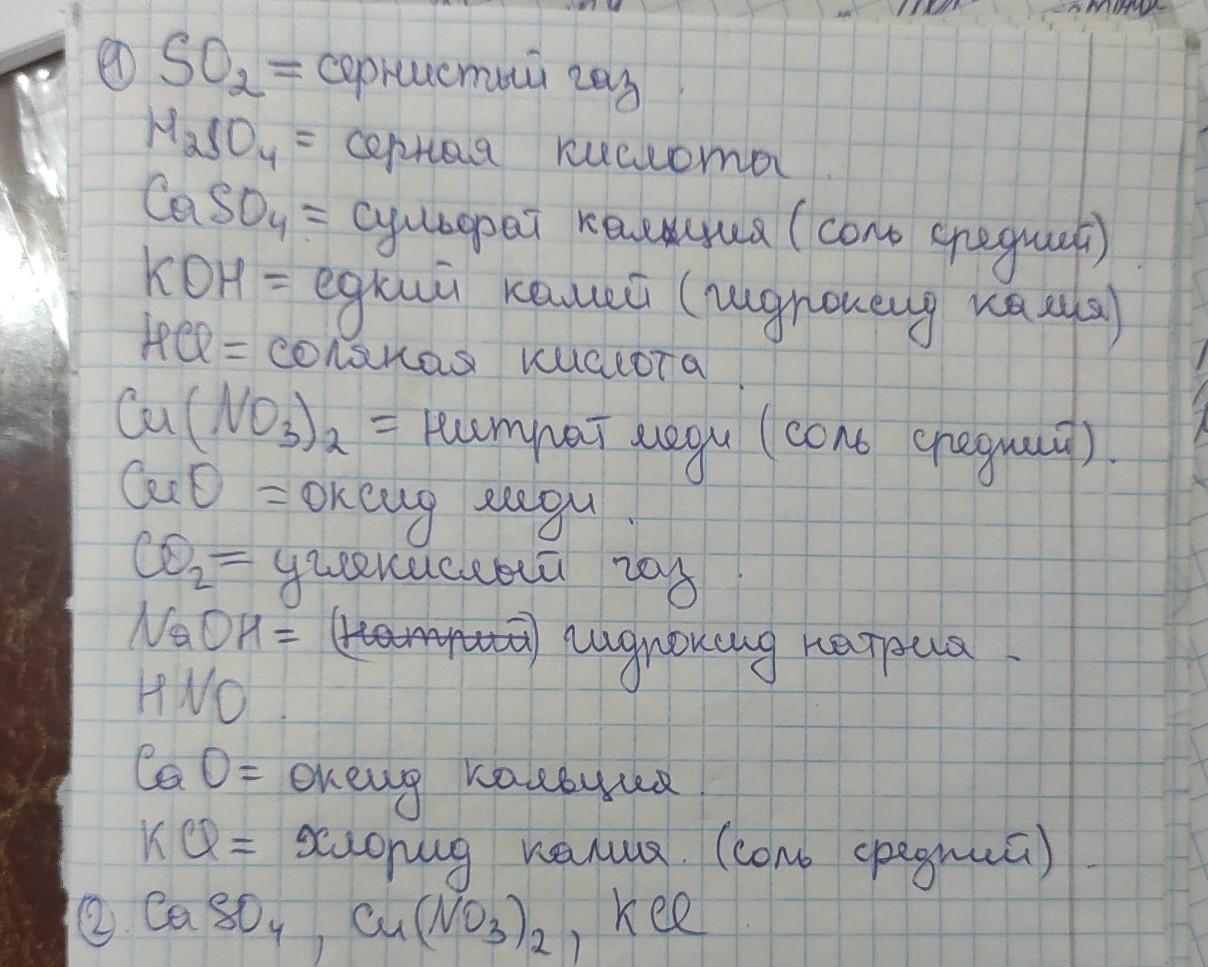 ① SO₂ = сернистый газ.
H₂SO₄ = серная кислоты.
CaSO₄ = сульфат калция (соль средний).
KOH = едкий калий (гидроксид калия)
HCl = соляная кислота.
Cu(NO₃)₂ = нитрат меди (соль средний).
CuO = оксид меди.
CO₂ = углекислый газ.
NaOH = (натрий) гидроксид натрия.
HNO.
CaO = оксид кальция.
KCl = хлорид калия. (соль средний).
②. CaSO₄, Cu(NO₃)₂, KCl.